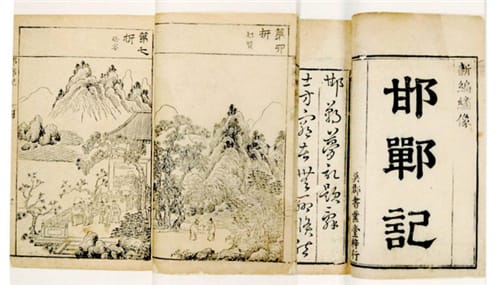 新編繡像
邯鄲記
吳郡書業堂梓行
邯鄲夢記題辭
士方窮苦無聊倏然
第七
折